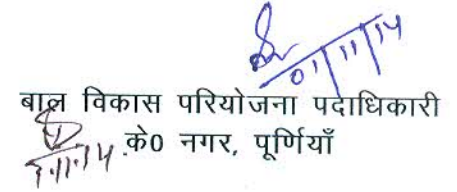 01/11/14
बाल विकास परियोजना पदाधिकारी
के0 नगर, पूर्णियाँ